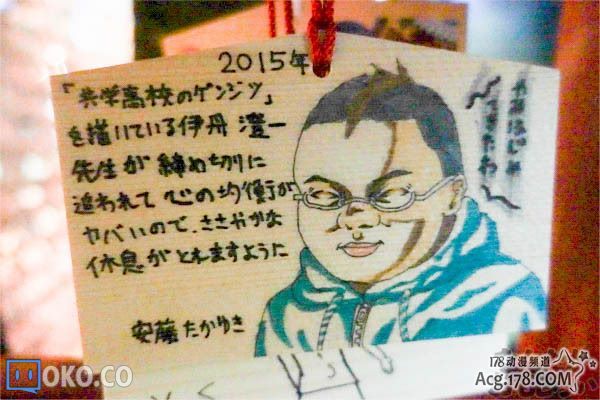 2015年
「共学高校のゲンジツ」
を描いている伊丹 澄一
先生が 締め切りに
追われて 心の均衡が
ヤバいので、ささやかな
休息がとれますように
安藤たかゆき
OKO.CO
178动漫频道
Acg.178.COM